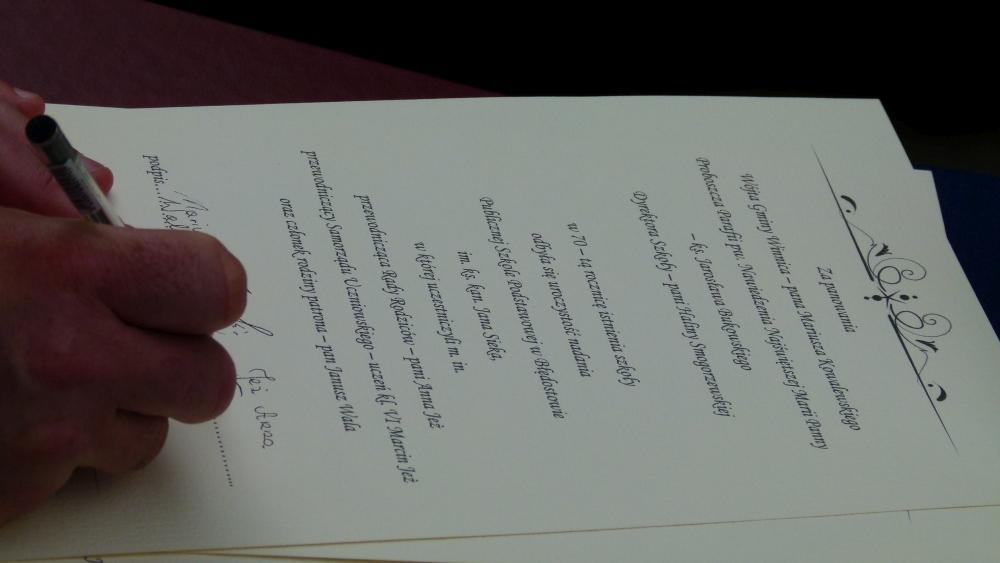 Za panowania
Wójta Gminy Winnica – pana Mariusza Kowalewskiego
Proboszcza Parafii pw. Nawiedzenia Najświętszej Marii Panny
– ks. Jarosława Bukowskiego
Dyrektora Szkoły – pani Haliny Smogorzewskiej
w 70 – tą rocznicę istnienia szkoły
odbyła się uroczystość nadania
Publicznej Szkole Podstawowej w Błędostowie
im. ks. kan. Jana Sieka,
w której uczestniczyli m. in.
przewodnicząca Rady Rodziców – pani Anna Jeż
przewodniczący Samorządu Uczniowskiego – uczeń kl. VI Marcin Jeż
oraz członek rodziny patrona – pan Janusz Wala
Jeż Anna
podpis...